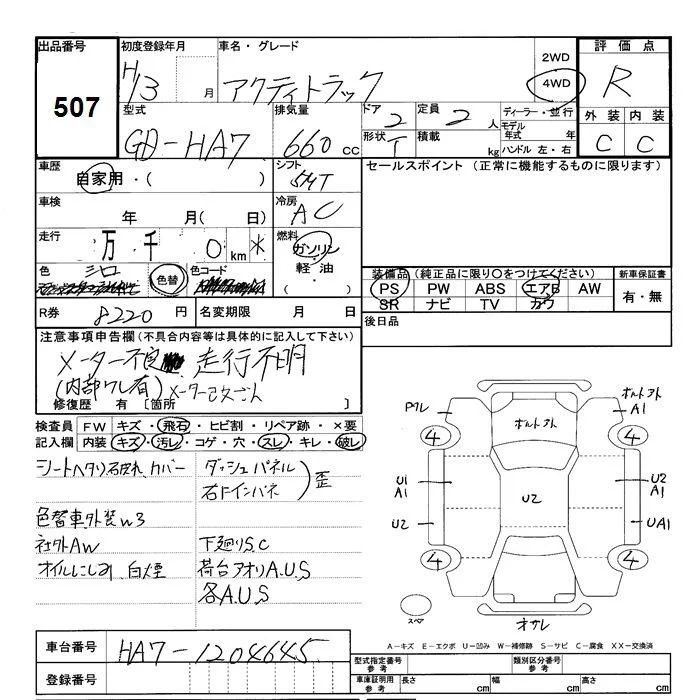 出品番号
507
初度登録年月
H13 月
車名・グレード
アクティトラック
2WD
4WD
評価点
R
外装 内装
C C
型式
GD-HA7
排気量
660 cc
ドア 2
形状 T
定員 2 人
積載 kg
ディーラー・並行
モデル年式 年
ハンドル 左・右
車歴
自家用・( )
シフト
5MT
セールスポイント (正常に機能するものに限ります)
車検
年 月( 日)
冷房
AC
走行
万 千 0 km *
燃料
ガソリン
軽油・
色
シロ
色替
色コード
装備品(純正品に限り〇をつけてください)
PS PW ABS エアB AW
SR ナビ TV カワ
新車保証書
有・無
R券 8220 円
名変期限 月 日
後日品
注意事項申告欄(不具合内容等は具体的に記入して下さい)
メーター不良 走行不明
(内部ワレ有) メーター改ざん
修復歴 有 [箇所 ]
検査員記入欄
FW キズ・飛石・ヒビ割・リペア跡・×要
内装 キズ・汚レ・コゲ・穴・スレ・キレ・破レ
シートヘタリ破れ、カバー
ダッシュパネル
右Fインパネ
歪
色替車外装W3
社外AW
オイルにじみ 白煙
下廻りS.C
荷台アオリA.U.S
各A.U.S
Pワレ
ボルト外
A1
4
4
ボルト外
U1
A1
U2
U2
U2
A1
UA1
4
4
スペア
オサレ
A-キズ E-エクボ U-凹み W-補修跡 S-サビ C-腐食 XX-交換済
車台番号
HA7-1204645
登録番号
型式指定番号
参考
類別区分番号
参考
車庫証明用
参考
長さ cm
幅 cm
高さ cm